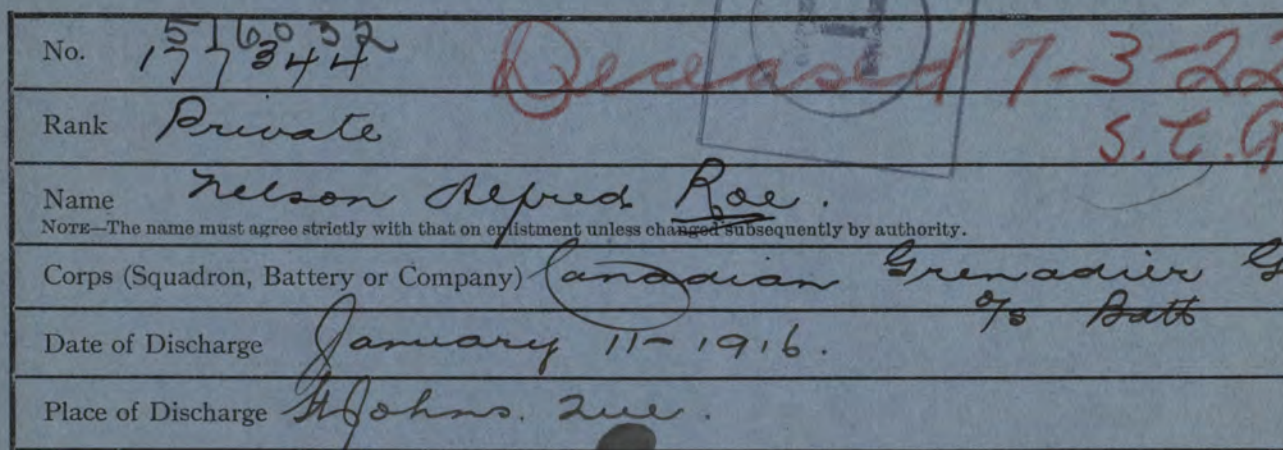 516032
No. 177344
Deceased 7-3-22
Rank Private
S.C.G
Name Nelson Alfred Roe.
NOTE—The name must agree strictly with that on enlistment unless changed subsequently by authority.
Corps (Squadron, Battery or Company) Canadian Grenadier G
o/s Batt
Date of Discharge January 11-1916.
Place of Discharge St Johns. Que.